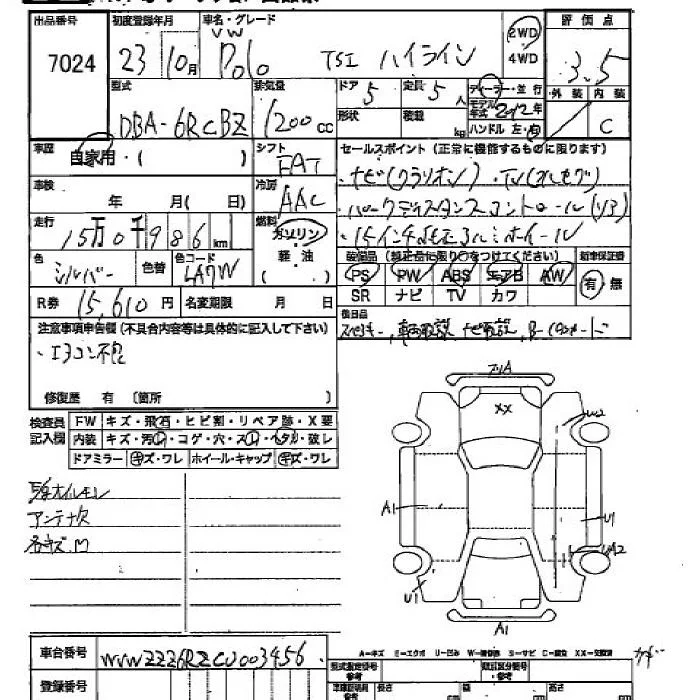 出品番号 初度登録年月 車名・グレード 評価点
7024 23 10月 VW Polo TSI ハイライン 2WD 4WD 3.5
型式 排気量 ドア 5 定員 5 人 ディーラー・並行 外装 内装
DBA-6RCBZ 1200 cc 形状 積載 kg モデル年式 2012年 ハンドル 左・右 C
車歴 自家用・( ) シフト FAT セールスポイント(正常に機能するものに限ります)
車検 年 月( 日) 冷房 AAC ・ナビ(クラリオン)・TV(フルセグ)
・パークディスタンスコントロール(リア)
走行 15万0千986 km 燃料 ガソリン 軽油 ( ) ・15インチアルミホイール
色 シルバー 色替 色コード LA7W 装備品(純正品に限り○をつけてください) 新車保証書
PS PW ABS エアB AW 有・無
SR ナビ TV カワ
R券 15,610円 名変期限 月 日 後日品
注意事項申告欄(不具合内容等は具体的に記入して下さい)
スペアキー,車両取説 ナビ取説,
・エアコン不良
修復歴 有 (箇所 )
検査員記入欄 FW キズ・飛石・ヒビ割・リペア跡・X要
内装 キズ・汚れ・コゲ・穴・スレ・ヘタリ・破レ
ドアミラー キズ・ワレ ホイール・キャップ キズ・ワレ
アンテナ欠
各キズ.M
XX
W2
A1
U1
A2
U1
A1
A=キズ E=エクボ U=凹み W=補修跡 S=サビ C=腐蝕 XX=交換済
車台番号 WVWZZZ6RZCU003456
登録番号 型式指定番号 参考 類別区分番号
車庫証明用 参考 長さ cm 幅 cm 高さ cm